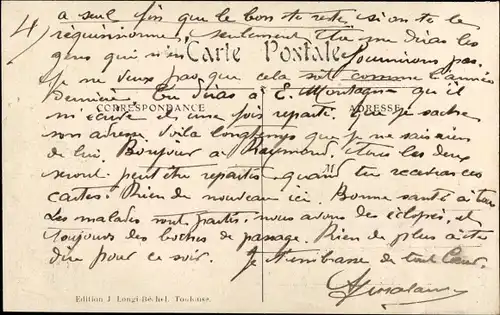 4)
a seul fin que le bon te reste, si on te le
réquisitionne, seulement tu me diras les
gens qui n'en fourniront pas.
Carte Postale
Je ne veux pas que cela soit comme l'année
dernière. Tu diras à E. Montagne qu'il
CORRESPONDANCE
ADRESSE
m'écrive et une fois reparti, que je sache
son adresse. Voilà longtemps que je ne sais rien
de lui. Bonjour à Raymond, tous les deux
seront peut être repartis quand tu recevras ces
cartes. Rien de nouveau ici. Bonne santé à tous
Les malades sont partis, nous avons des éclopés, et
toujours des boches de passage. Rien de plus à te
dire pour ce soir. Je t'embrasse de tout cœur.
Edition J. Longi-Béchel, Toulouse.